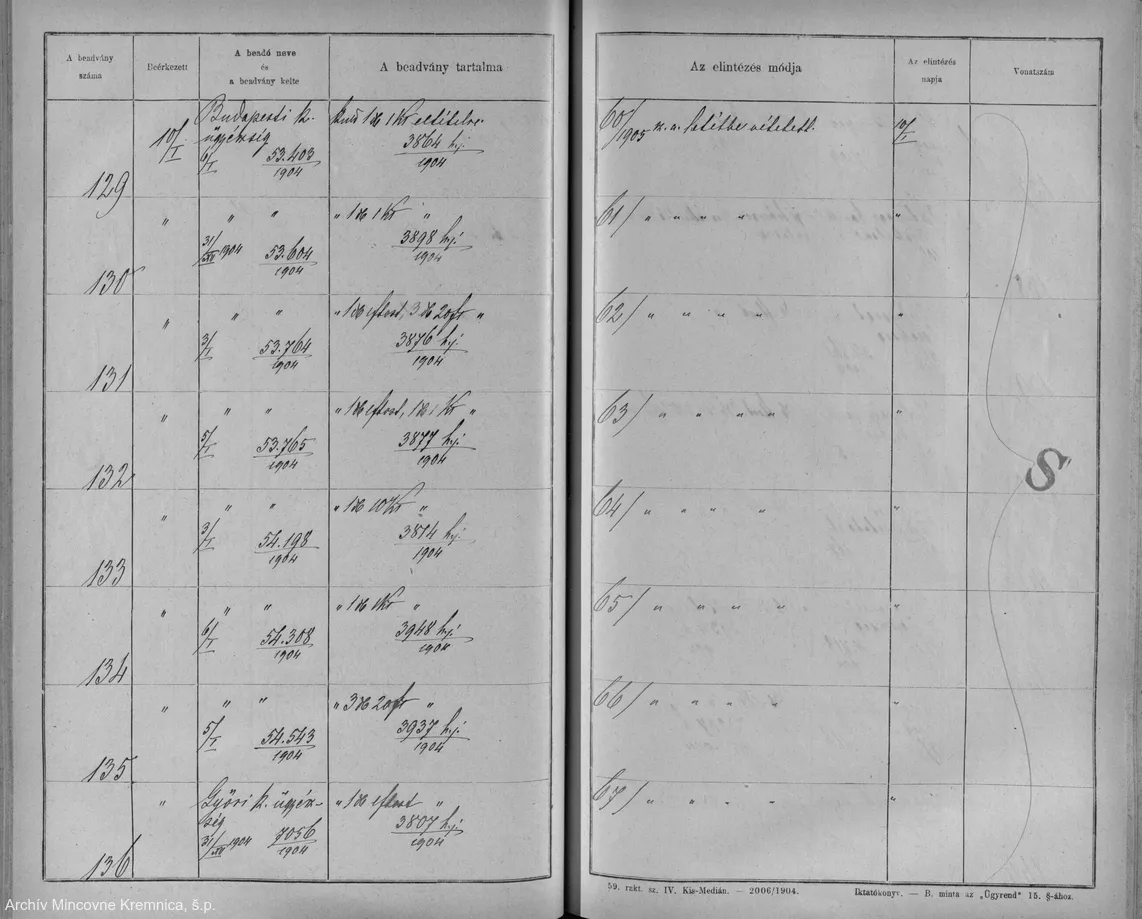 A beadvány
száma
Beérkezett
A beadó neve
és
a beadvány kelte
A beadvány tartalma
Az elintézés módja
Az elintézés
napja
Vonatszám
129
10/I
Budapesti k.
ügyészség
6/I 53.403/1904
1 db 1 Kr
3864 hj./1904
60/1905
10/I
130
" " "
31/XII 1904 53.604/1904
" 1 db 1 Kr "
3898 hj./1904
61/ " " " "
"
131
" " "
3/I 53.764/1904
" 3 db 20 fr "
3876 hj./1904
62/ " " " "
"
132
" " "
5/I 53.765/1904
" 1 db 1 Kr "
3877 hj./1904
63/ " " " "
"
133
" " "
3/I 54.198/1904
" 1 db 10 Kr "
3874 hj./1904
64/ " " " "
"
134
" " "
6/I 54.308/1904
" 1 db 1 Kr "
3948 hj./1904
65/ " " " "
"
135
" " "
5/I 54.543/1904
" 3 db 20 fr "
3937 hj./1904
66/ " " " "
"
136
"
Győri k. ügyész-
ség
31/XII 1904 7056/1904
" 1 db "
3807 hj./1904
67/ " " " "
"
S
59. rzkt. sz. IV. Kis-Medián. — 2006/1904.
Iktatókönyv. — B. minta az „Ügyrend" 15. §-ához.
Archív Mincovne Kremnica, š.p.